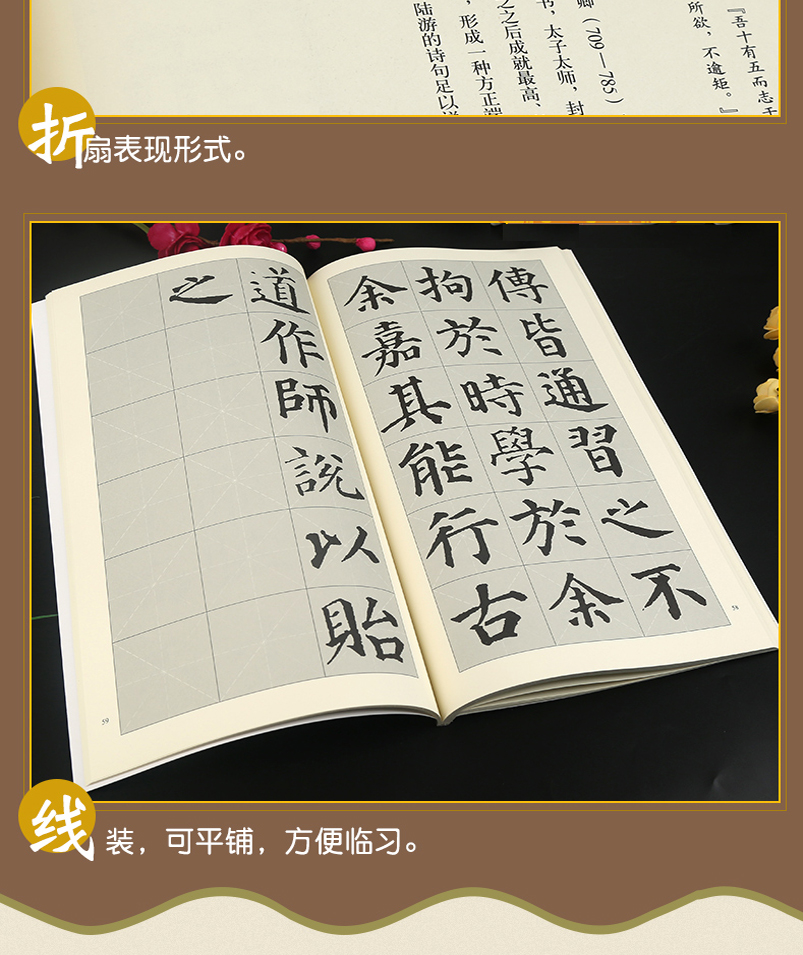 『吾十有五而志于
所欲，不逾矩。』
卿（709—785）
书，太子太师，封
之之后成就最高、
，形成一种方正端
陆游的诗句足以
折扇表现形式。
傳皆通習之不
拘於時學於余
余嘉其能行古
58
道作師說以貽
之
59
线装，可平铺，方便临习。